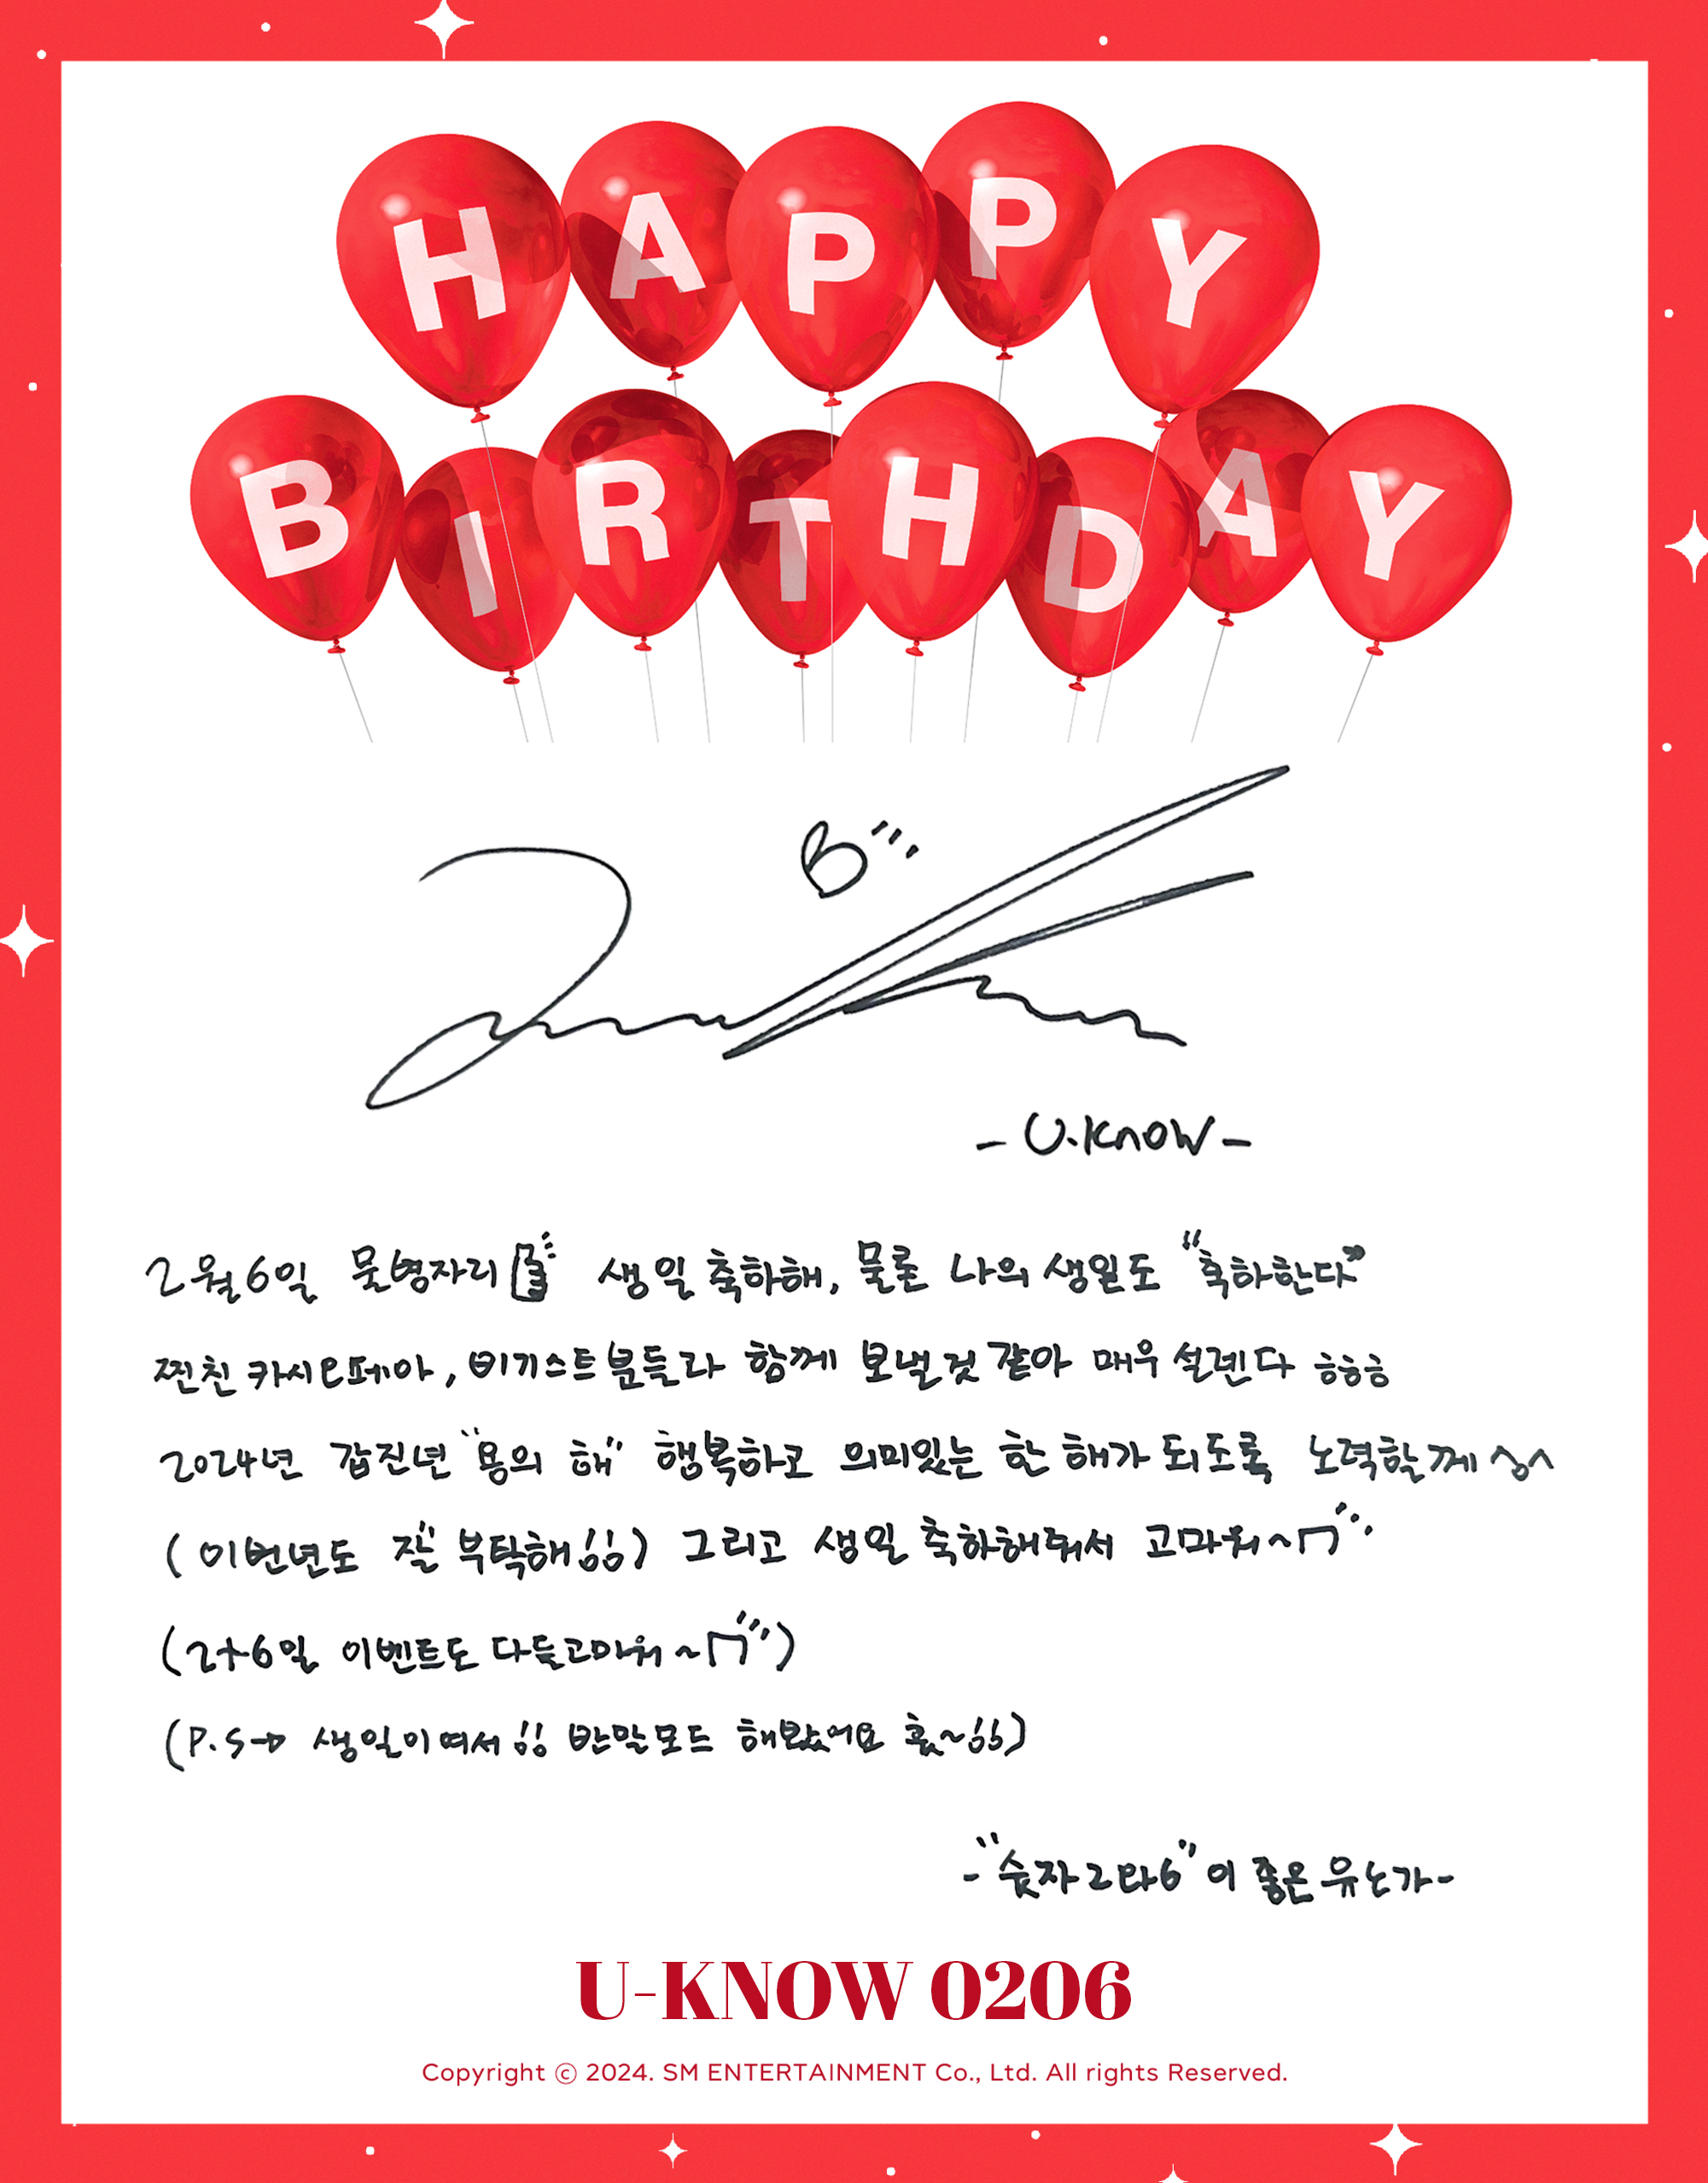 HAPPY
BIRTHDAY
-U.KNOW-
2월6일 물병자리 생일 축하해, 물론 나의 생일도 "축하한다"
찐친 카시오페아, 비기스트분들과 함께 보낼것 같아 매우 설렌다 ㅎㅎㅎ
2024년 갑진년 "용의 해" 행복하고 의미있는 한 해가 되도록 노력할께 ^^
(이번년도 잘 부탁해!!) 그리고 생일 축하해줘서 고마워~
(2+6일 이벤트도 다들고마워~)
(P.S→ 생일이여서!! 반말모드 해봤어요 훗~!!)
-"숫자2와6"이 좋은 유노가-
U-KNOW 0206
Copyright ⓒ 2024. SM ENTERTAINMENT Co., Ltd. All rights Reserved.